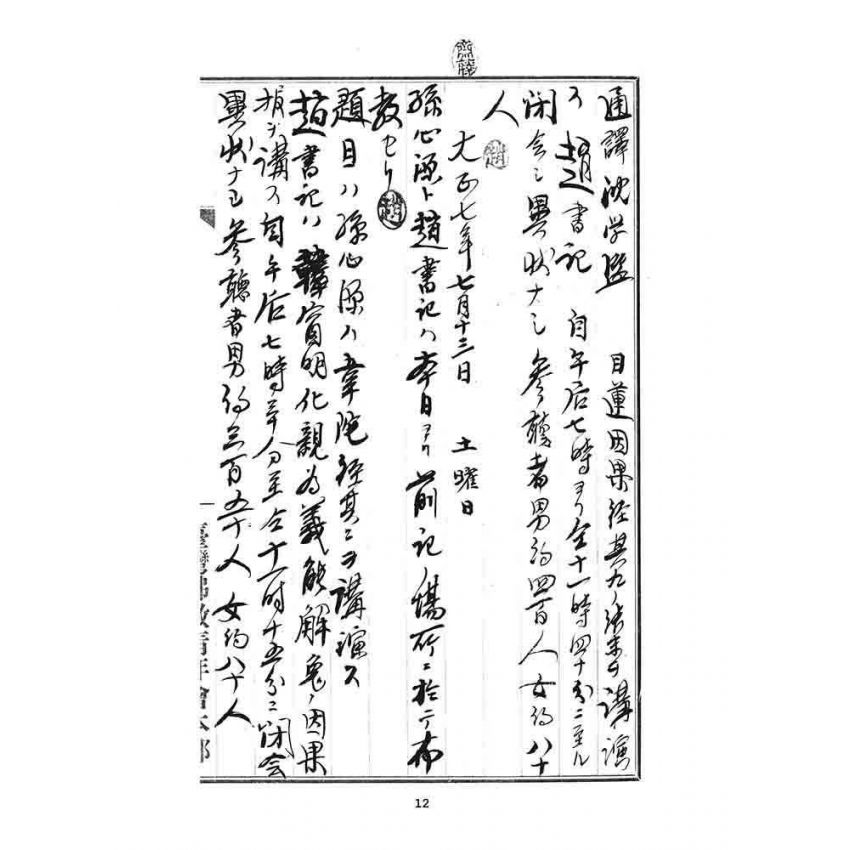 通譯沈学監　目蓮因果经其九ノ結末ヲ講演
ス　趙書記　自午后七時ヨリ仝十一時四十分ニ至ル
闭会ニ異状ナシ　参聴者男約四百人　女約八十
人
大正七年七月十三日　土曜日
孫心源ト趙書記ハ本日ヨリ前记ノ場所ニ於テ布
教セリ
題目ハ孫心源ハ韋陀经其二ヲ講演ス
趙書记ハ賓明化親為義能解冤ノ因果
报ヲ講ス　自午后七時半分至仝十一时十五分ニ闭会
異状ナシ　参聴者男約三百五十人　女约八十人
臺灣佛教青年會本部
12